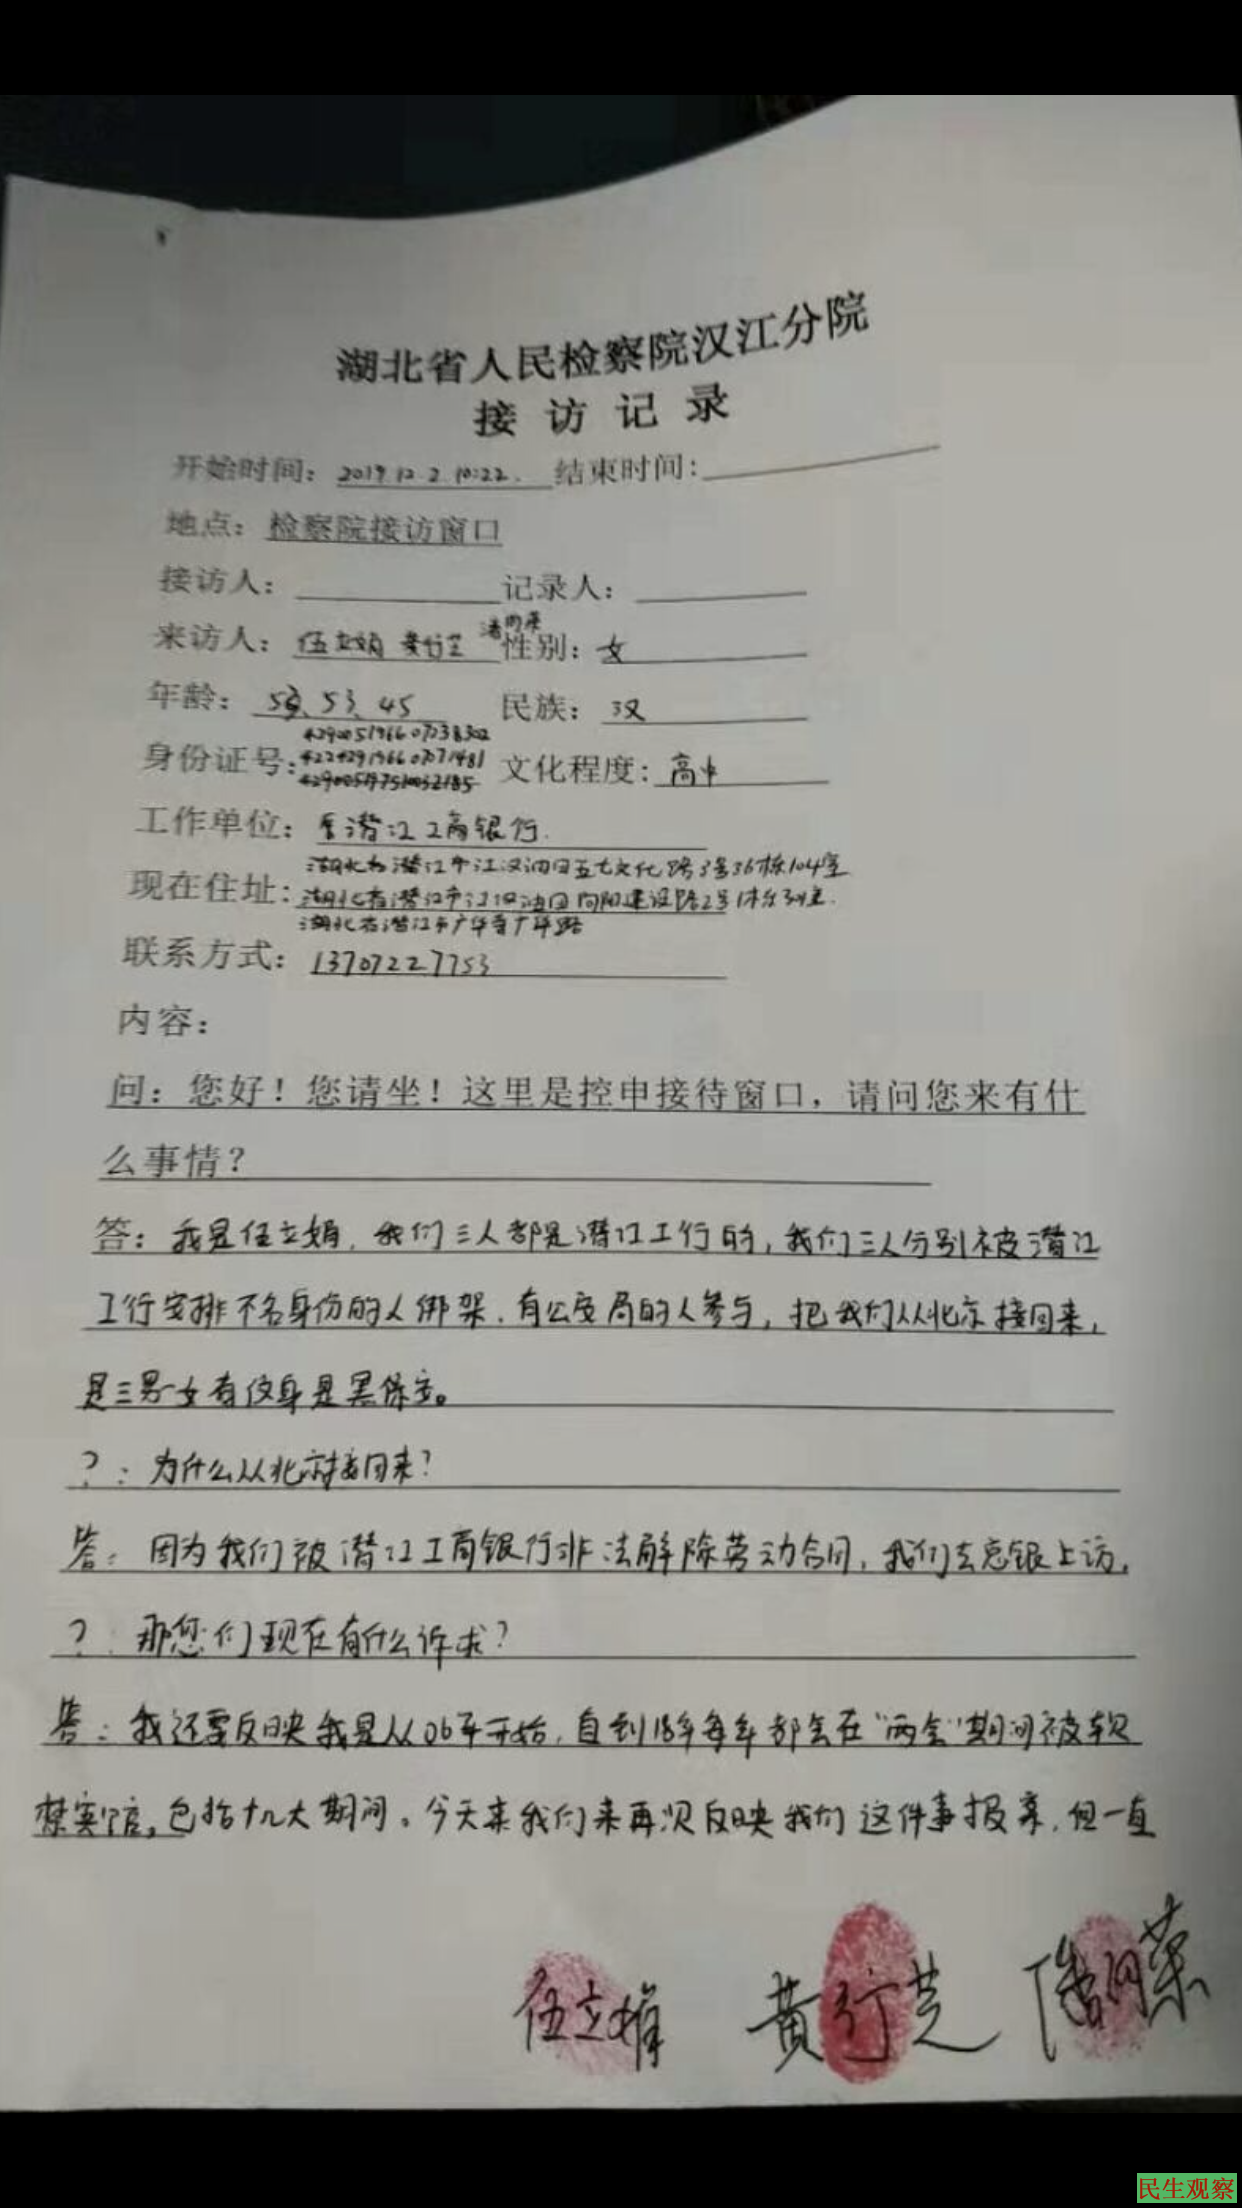 湖北省人民检察院汉江分院
接访记录
开始时间：2019.12.2.10:22. 结束时间：
地点：检察院接访窗口
接访人： 记录人：
来访人：伍立娟 黄行芝 性别：女
年龄： 53、45 民族：汉
身份证号： 文化程度：高中
工作单位：潜江工商银行.
湖北省潜江市江汉油田五七文化路3号36栋104室
现在住址：湖北省潜江市江汉油田向阳建设路2号
湖北省潜江市广华寺广华路
联系方式：13707227753
内容：
问：您好！您请坐！这里是控申接待窗口，请问您来有什
么事情？
答：我是伍立娟，我们三人都是潜江工行的，我们三人分别被潜江
工行安排不名身份的人绑架，有公安局的人参与，把我们从北京接回来，
是三男一女有纹身是黑保安。
？：为什么从北京接回来？
答：因为我们被潜江工商银行非法解除劳动合同，我们去总银上访。
？：那您们现在有什么诉求？
答：我还要反映我是从06年开始，自到18年每年都会在“两会”期间被软
禁宾馆，包括十九大期间。今天来我们来再次反映我们这件事报案，但一直
伍立娟 黄行芝
民生观察